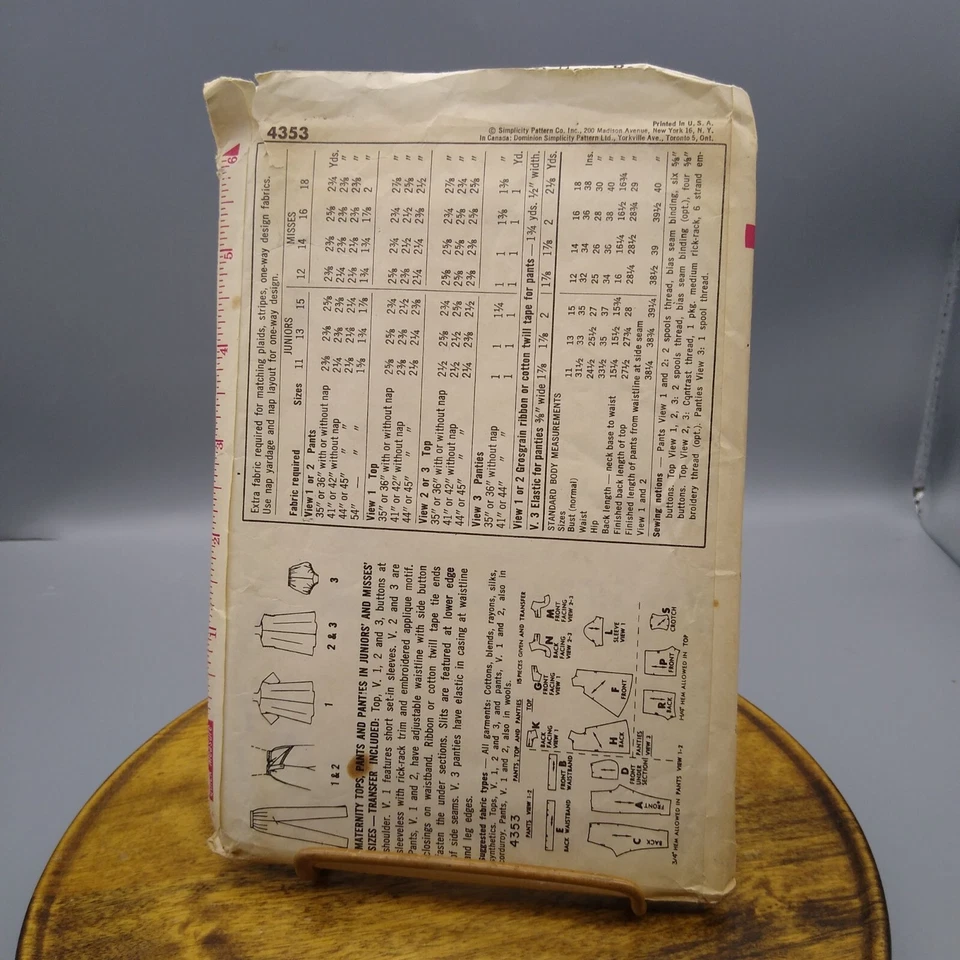 4353
Printed in U. S. A.
© Simplicity Pattern Co. Inc., 200 Madison Avenue, New York 16, N. Y.
In Canada: Dominion Simplicity Pattern Ltd., Yorkville Ave., Toronto 5, Ont.
MATERNITY TOPS, PANTS AND PANTIES IN JUNIORS' AND MISSES'
SIZES — TRANSFER INCLUDED: Top, V. 1, 2 and 3, buttons at
shoulder. V. 1 features short set-in sleeves. V. 2 and 3 are
sleeveless with rick-rack trim and embroidered applique motif.
Pants, V. 1 and 2, have adjustable waistline with side button
closings on waistband. Ribbon or cotton twill tape tie ends
fasten the under sections. Slits are featured at lower edge
of side seams. V. 3 panties have elastic in casing at waistline
and leg edges.
Suggested fabric types — All garments: Cottons, blends, rayons, silks,
synthetics. Tops, V. 1, 2 and 3, and pants, V. 1 and 2, also in
corduroy. Pants, V. 1 and 2, also in wools.
1 & 2
1
2 & 3
3
4353
PANTS, TOP AND PANTIES
PIECES GIVEN AND TRANSFER
PANTS VIEW 1-2
TOP
E
BACK WAISTBAND
B
FRONT WAISTBAND
K
BACK FACING VIEW 1
G
FRONT FACING VIEW 1
N
BACK FACING VIEW 2-3
M
FRONT FACING VIEW 2-3
C
BACK
A
FRONT
D
FRONT UNDER SECTION
H
BACK
F
FRONT
L
SLEEVE VIEW 1
PANTIES VIEW 3
R
BACK
P
FRONT
S
CROTCH
3/4" HEM ALLOWED IN PANTS VIEW 1-2
1-1/4" HEM ALLOWED IN TOP
Extra fabric required for matching plaids, stripes, one-way design fabrics.
Use nap yardage and nap layout for one-way design.
JUNIORS MISSES
Fabric required Sizes 11 13 15 12 14 16 18
View 1 or 2 Pants
35" or 36" with or without nap 2⅜ 2⅜ 2⅝ 2⅜ 2⅜ 2⅝ 2¾ Yds.
41" or 42" without nap 2¼ 2⅜ 2⅜ 2¼ 2⅜ 2⅜ 2⅜ "
44" or 45" " 2⅛ 2⅛ 2¼ 2⅛ 2⅛ 2⅜ 2⅜ "
54" — " 1⅝ 1¾ 1⅞ 1¾ 1¾ 1⅞ 2 "
View 1 Top
35" or 36" with or without nap 2⅝ 2⅝ 2¾ 2⅝ 2¾ 2¾ 2⅞ "
41" or 42" without nap 2⅜ 2⅜ 2½ 2⅜ 2½ 2½ 2⅝ "
44" or 45" " 2⅛ 2¼ 2⅜ 2¼ 2¼ 2⅜ 2½ "
View 2 or 3 Top
35" or 36" with or without nap 2½ 2⅝ 2¾ 2⅝ 2⅝ 2¾ 2⅞ "
41" or 42" without nap 2½ 2½ 2⅝ 2⅝ 2⅝ 2⅝ 2¾ "
44" or 45" " 2¼ 2⅜ 2½ 2⅜ 2⅜ 2⅝ 2⅝ "
View 3 Panties
35" or 36" without nap 1 1 1¼ 1 1 1⅜ 1⅜ Yd.
41" or 44" " 1 1 1 1 1 1 1 "
View 1 or 2 Grosgrain ribbon or cotton twill tape for pants —1¾ yds. ½" width.
V. 3 Elastic for panties ⅜" wide 1⅞ 1⅞ 2 1⅞ 1⅞ 2 2⅛ Yds.
STANDARD BODY MEASUREMENTS
Sizes 11 13 15 12 14 16 18
Bust (normal) 31½ 33 35 32 34 36 38 Ins.
Waist 24½ 25½ 27 25 26 28 30 "
Hip 33½ 35 37 34 36 38 40 "
Back length — neck base to waist 15¼ 15½ 15¾ 16 16¼ 16½ 16¾ "
Finished back length of top 27½ 27¾ 28 28¼ 28½ 28¾ 29 "
Finished length of pants from waistline at side seam
View 1 and 2 38¼ 38¾ 39¼ 38½ 39 39½ 40 "
Sewing notions — Pants View 1 and 2: 2 spools thread, bias seam binding, six ⅝"
buttons. Top View 1, 2, 3: 2 spools thread, bias seam binding (opt.), four ⅝"
buttons. Top View 2, 3: Contrast thread, 1 pkg. medium rick-rack, 6 strand em-
broidery thread (opt.). Panties View 3: 1 spool thread.
1
2
3
4
5
6